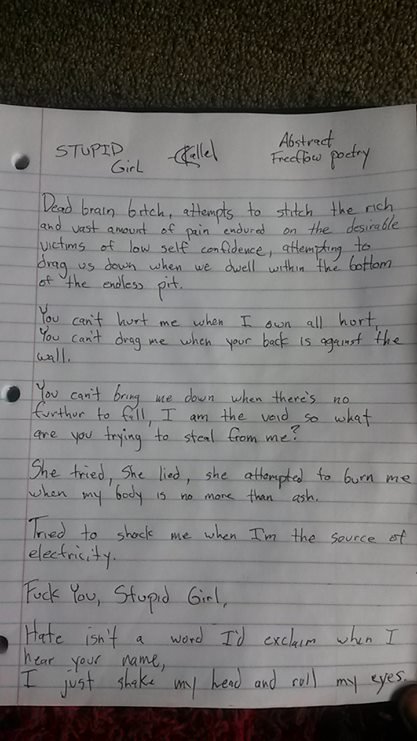 STUPID Girl
Abstract
Freeflow poetry
Dead brain bitch, attempts to stitch the rich
and vast amount of pain endured on the desirable
victims of low self confidence, attempting to
drag us down when we dwell within the bottom
of the endless pit.
You can't hurt me when I own all hurt,
You can't drag me when your back is against the
wall.
You can't bring me down when there's no
furthur to fall, I am the void so what
are you trying to steal from me?
She tried, She lied, she attempted to burn me
when my body is no more than ash.
Tried to shock me when I'm the source of
electricity.
Fuck You, Stupid Girl,
Hate isn't a word I'd exclaim when I
hear your name,
I just shake my head and roll my eyes.